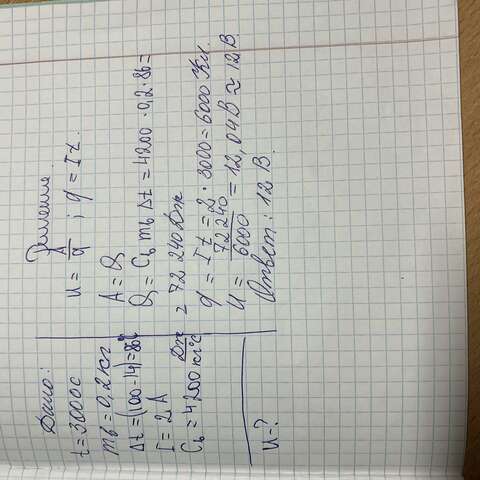 Дано:
t = 3000 с
mв = 0,2 кг
Δt = (100 - 14) = 86°
I = 2 А
Cв = 4200 Дж/кг°С
u - ?
Решение.
u = A/q ; q = It.
A = Q
Q = Cв mв Δt = 4200 · 0,2 · 86 =
= 72 240 Дж
q = It = 2 · 3000 = 6000 Кл.
u = 72240/6000 = 12,04 В ≈ 12 В.
Ответ: 12 В.